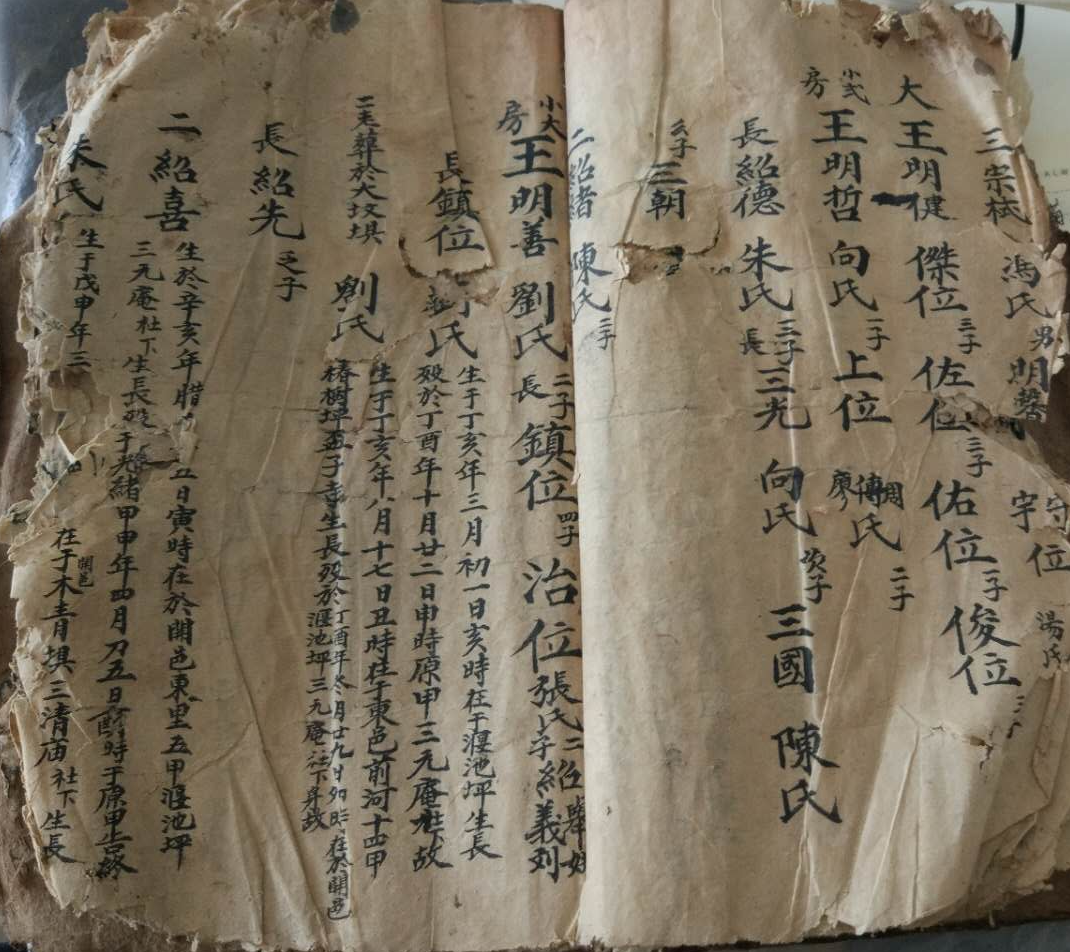 三宗棫 馮氏 男明 宇位 湯氏
大王明健 傑位 三子 佐位 三子 佑位 一子 俊位
小弍房 王明哲 向氏 一子 上位 廖傅周氏 二子
長紹德 朱氏 三子 長三光 向氏 次子 三國 陳氏
么子 三朝
二紹緒 陳氏 三子
小大房 王明善 劉氏 二子 長鎮位 四子 治位 張氏 二子 紹舉 義
長鎮位 劉氏 生于丁亥年三月初一日亥時在于漫池坪生長
歿於丁酉年十月廿二日申時原甲三元庵社下故
二老葬於大坟埧
劉氏 生于丁亥年八月十七日丑時在于東邑前河十四甲
椿樹坪盃子寺生長歿於丁酉年冬月廿九日卯時在於開邑漫池坪三元庵社下身故
長紹先 乏子
二紹喜 生於辛亥年腊 五日寅時在於開邑東里五甲漫池坪
三元庵社下生長歿于光緒甲申年四月 五日 時于原甲告終
朱氏 生于戊申年三 在于開邑 埧三清庙社下生長